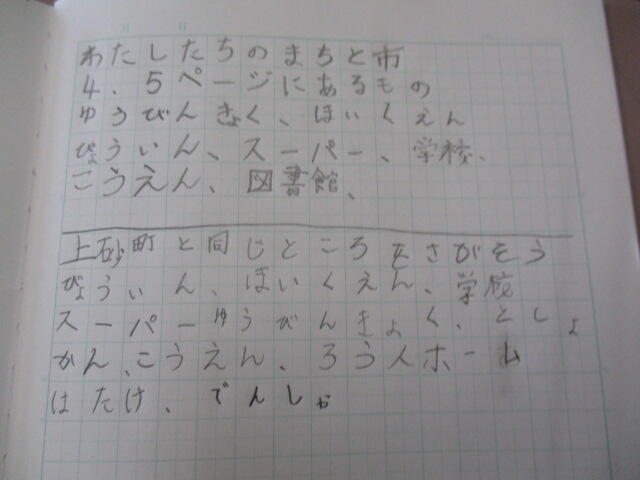 わたしたちのまちと市
4.5ページにあるもの
ゆうびんきょく、ほいくえん
びょういん、スーパー、学校、
こうえん、図書館、
上砂町と同じところをさがそう
びょういん、ほいくえん、学校
スーパーゆうびんきょく、としょ
かん、こうえん、ろう人ホーム
はたけ、でんしゃ
月 日